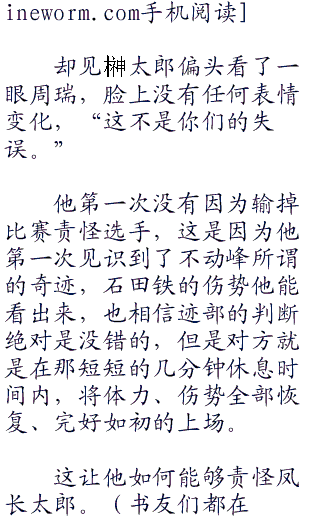 ineworm.com手机阅读]
却见榊太郎偏头看了一
眼周瑞，脸上没有任何表情
变化，“这不是你们的失
误。”
他第一次没有因为输掉
比赛责怪选手，这是因为他
第一次见识到了不动峰所谓
的奇迹，石田铁的伤势他能
看出来，也相信迹部的判断
绝对是没错的，但是对方就
是在那短短的几分钟休息时
间内，将体力、伤势全部恢
复、完好如初的上场。
这让他如何能够责怪凤
长太郎。（书友们都在